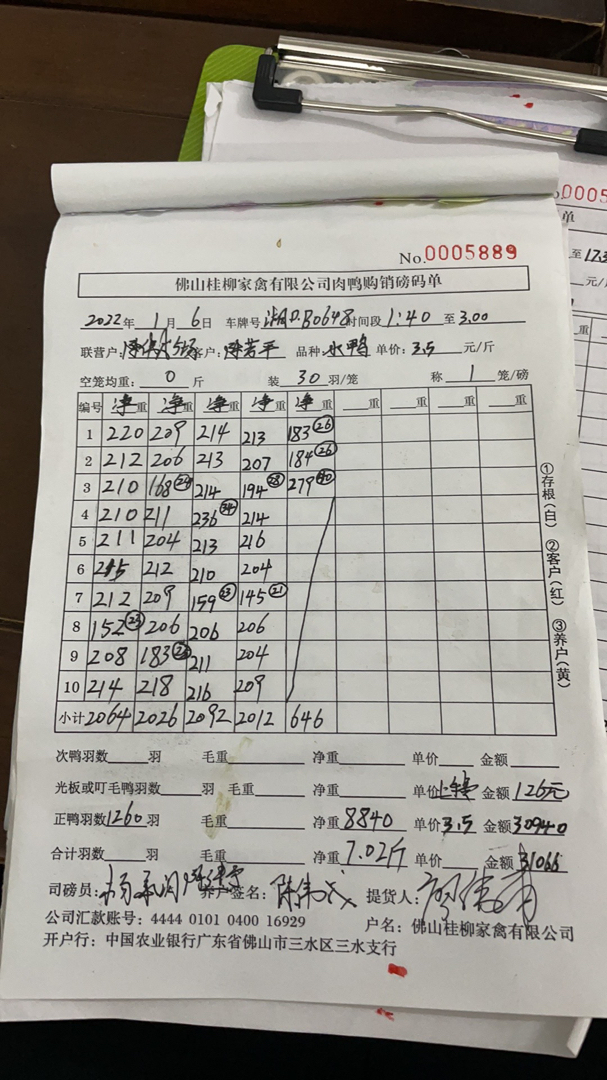 No.0005889
佛山桂柳家禽有限公司肉鸭购销磅码单
2022年 1月 6日 车牌号 湘D.B0648 时间段 1:40 至 3.00
联营户: 客户: 陈若平 品种: 水鸭 单价: 3.5 元/斤
空笼均重: 0 斤 装 30 羽/笼 称 1 笼/磅
编号 净重 净重 净重 净重 净重 重 重 重 重
1 220 209 214 213 183 (26)
2 212 206 213 207 184 (26)
3 210 168 (24) 214 194 (28) 279 (40)
4 210 211 236 (34) 214
5 211 204 213 216
6 215 212 210 204
7 212 209 159 (23) 145 (21)
8 152 (23) 206 206 206
9 208 183 211 204
10 214 218 216 209
小计 2064 2026 2092 2012 646
①存根(白) ②客户(红) ③养户(黄)
次鸭羽数 羽 毛重 净重 单价 金额
光板或叮毛鸭羽数 羽 毛重 净重 单价 金额 126元
正鸭羽数 1260 羽 毛重 净重 8840 单价 3.5 金额 30940
合计羽数 羽 毛重 净重 7.02斤 单价 金额 31066
司磅员: 养户签名: 陈伟成 提货人:
公司汇款账号: 4444 0101 0400 16929 户名: 佛山桂柳家禽有限公司
开户行: 中国农业银行广东省佛山市三水区三水支行
0005
单
至 17.3
元/